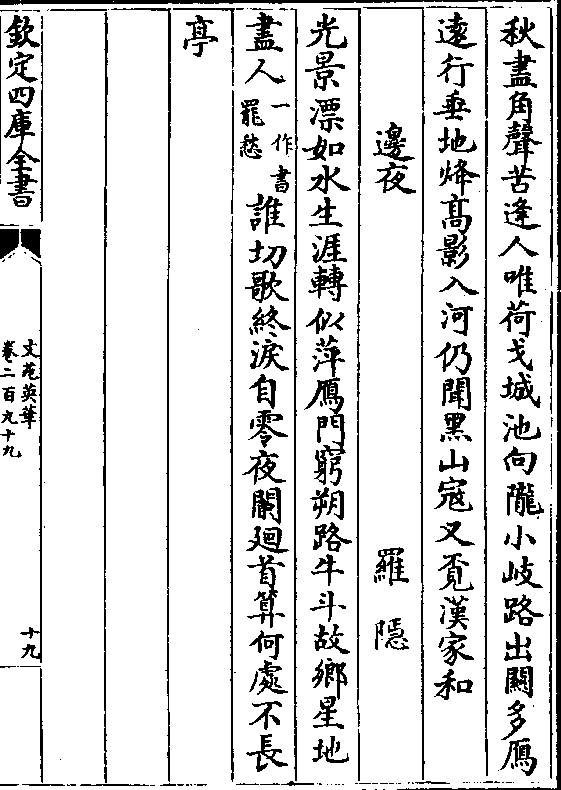 秋盡角聲苦逢人唯荷戈城池向隴小岐路出關多鴈
遠行垂地烽高影入河仍聞黑山寇又覔漢家和
邊夜　羅隱
光景漂如水生涯轉似萍鴈門窮朔路牛斗故鄉星地
盡人一作書罷愁誰切歌終淚自零夜闌廻首算何處不長
亭
欽定四庫全書
文苑英華
卷二百九十九
十九